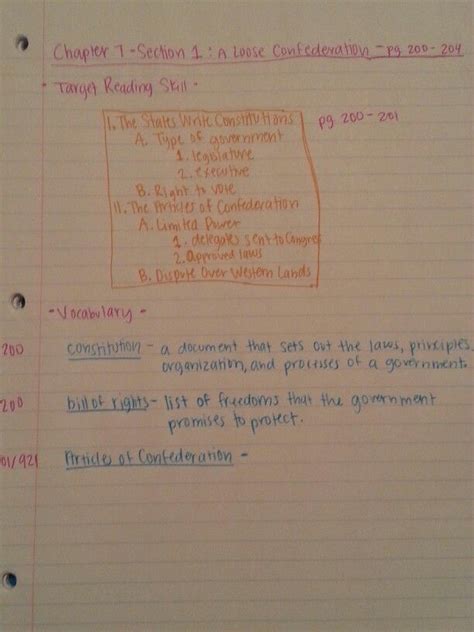 Chapter 7 - Section 1: A Loose Confederation - pg 200-204
- Target Reading Skill -
I. The States Write Constitutions pg 200-201
A. Type of government
1. legislature
2. executive
B. Right to vote
II. The Articles of Confederation
A. Limited Power
1. delegates sent to Congress
2. Approved laws
B. Dispute Over Western Lands
- Vocabulary -
200 constitution - a document that sets out the laws, principles,
organization, and processes of a government.
200 bill of rights - list of freedoms that the government
promises to protect.
01/921 Articles of Confederation -